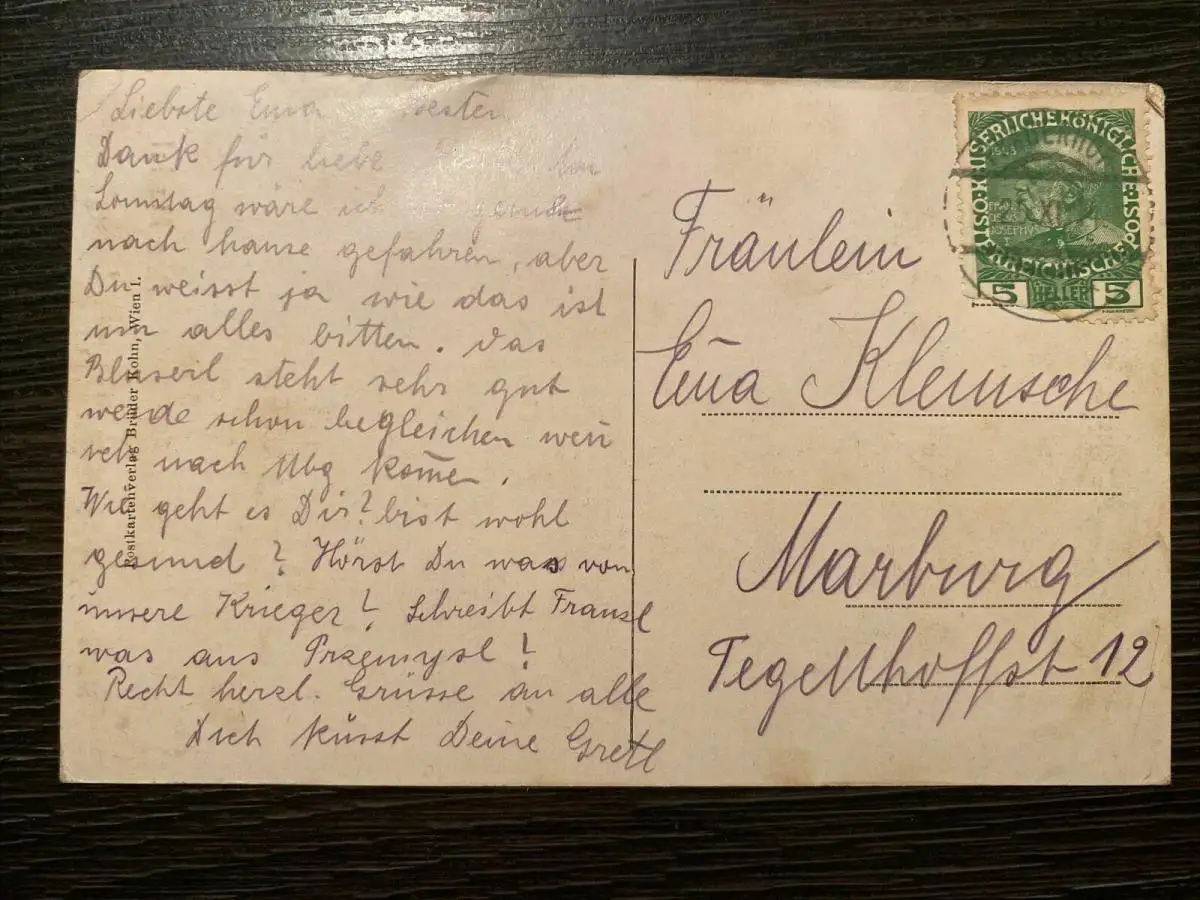 Liebste Ema besten
Dank für liebe
Sonntag wäre ich gerne
nach hause gefahren, aber
Du weisst ja wie das ist
um alles bitten. Das
steht sehr gut
werde schon begleichen wen̄
nach Mbg kom̄en.
Wie geht es Dir? bist wohl
gesund? Hörst Du was von
unsere Krieger? Schreibt Franzl
was aus Przemysl?
Recht herzl. Grüsse an alle
Dich küsst Deine Gretl
Postkartenverlag Brüder Kohn, Wien I.
KAISERLICHE KÖNIGLICHE ÖSTERREICHISCHE POST
5 HELLER 5
Fräulein
Ema Klemsche
Marburg
Tegetthoffst 12